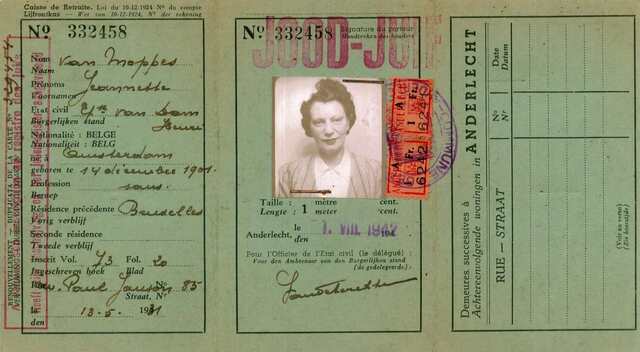 Caisse de Retraite. Loi du 10-12-1924 Nº du compte
Lijfrentkas — Wet van 10-12-1924, Nr der rekening
Nº 332458
Nom
Naam
van Moppes
Prénoms
Voornamen
Jeannette
Etat civil
Burgerlijken stand
Epse van Dam
Henri
Nationalité : BELGE
Nationaliteit : BELG
Né à
Amsterdam
geboren te 14 décembre 1901
Profession
Beroep
sans
Résidence précédente
Vorig verblijf
Bruxelles
Seconde résidence
Tweede verblijf
Inscrit Vol. 73 Fol. 20
Ingeschreven boek Blad
Rue Paul Janson 85
Straat, Nº
le
den
13.5. 1931
RENOUVELLEMENT — DUPLICATA DE LA CARTE Nº
Nº 332458
Signature du porteur
Handteeken des houders
JOOD-JUIF
A
Fr. 1 Fr.
6242 6240
Taille : 1 mètre cent.
Lengte : meter cent.
Anderlecht, le
den
1. VIII. 1942
Pour l'Officier de l'Etat civil (le délégué) :
Voor den Ambtenaar van den Burgerlijken stand
(de gedelegeerde) :
Demeures successives à
Achtereenvolgende woningen in
ANDERLECHT
RUE — STRAAT
Nº
Date
Datum
(Voir au verso)
(Zie keerzijde)